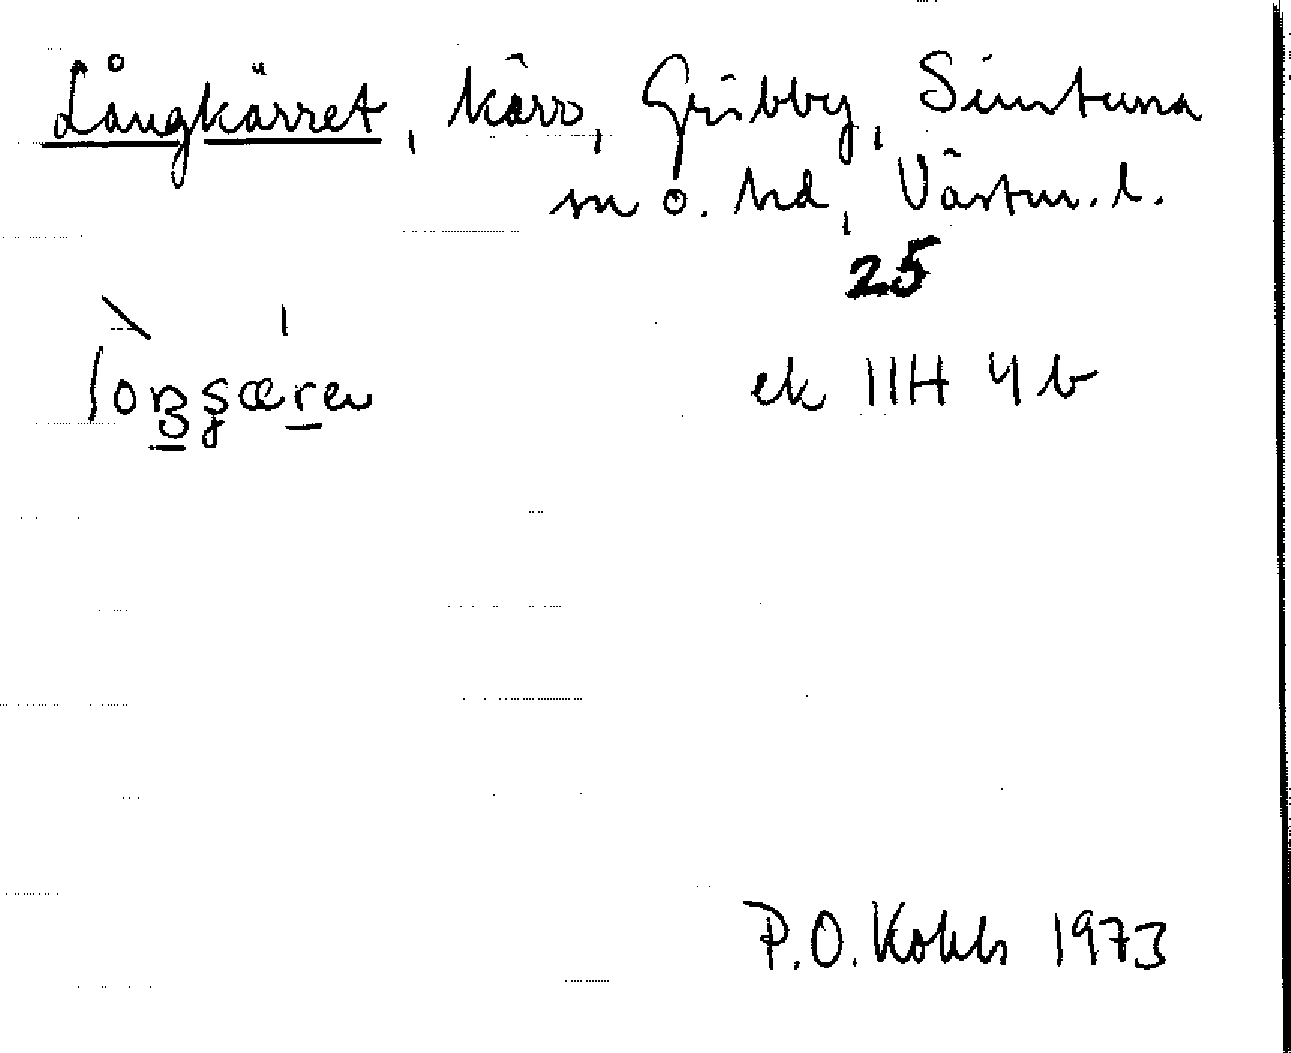 Långkärret, kärr, Gråbby, Simtuna
sn o. hd, Västm. l.
25
ek 11H 4b
P.O. Kohls 1973